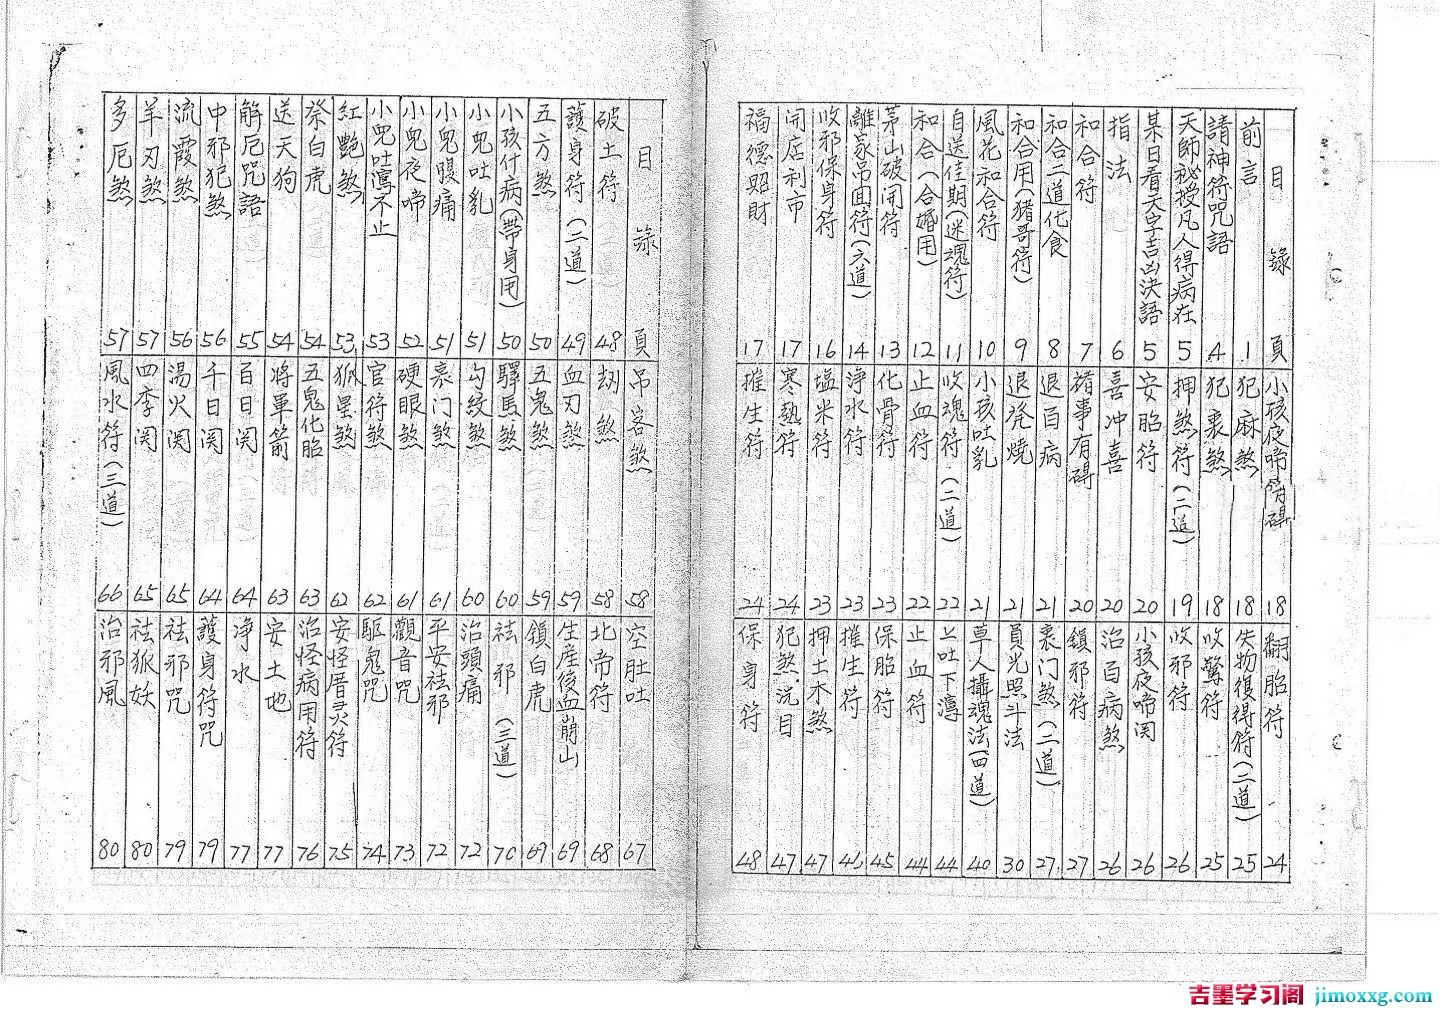 目錄 頁
前言 1
請神符咒語 4
天師祕授凡人得病在 5
某日看天字吉凶決語 5
指法 6
和合符 7
和合二道化食 8
和合用(猪哥符) 9
風花和合符 10
自送佳期(迷魂符) 11
和合(合婚用) 12
茅山破開符 13
離家吊囬符(六道) 14
收邪保身符 16
開店利市 17
福德招財 17
小孩夜啼符 18
犯麻煞 18
犯喪煞 18
押煞符(二道) 19
安胎符 20
喜冲喜 20
禇事有碍 20
退百病 21
退発燒 21
小孩吐乳 21
收魂符(二道) 22
止血符 22
化骨符 23
淨水符 23
塩米符 23
寒熱符 24
摧生符 24
翻胎符 24
失物復得符(二道) 25
收驚符 25
收邪符 26
小孩夜啼関 26
治百病煞 26
鎮邪符 27
喪门煞(二道) 27
員光照斗法 30
草人攝魂法(四道) 40
上吐下瀉 44
止血符 44
保胎符 45
摧生符 46
押土木煞 47
犯煞.洗目 47
保身符 48
目錄 頁
破土符 48
護身符(二道) 49
五方煞 50
小孩什病(帶身用) 50
小鬼吐乳 51
小鬼腹痛 51
小鬼夜啼 52
小鬼吐瀉不止 53
紅艷煞 53
祭白虎 54
送天狗 54
解厄咒語 55
中邪犯煞 56
流霞煞 56
羊刃煞 57
多厄煞 57
吊客煞 58
刼煞 58
血刃煞 59
五鬼煞 59
驛馬煞 60
勾絞煞 60
喪门煞 61
硬眼煞 61
官符煞 62
狐星煞 62
五鬼化胎 63
將軍箭 63
百日関 64
千日関 64
湯火関 65
四季関 65
風水符(三道) 66
空肚吐 67
北帝符 68
生産後血崩山 69
鎮白虎 69
祛邪(三道) 70
治頭痛 72
平安祛邪 72
觀音咒 73
駆鬼咒 74
安怪厝灵符 75
治怪病用符 76
安土地 77
淨水 77
護身符咒 79
祛邪咒 79
祛狐妖 80
治邪風 80
吉墨学习阁 jimoxxg.com